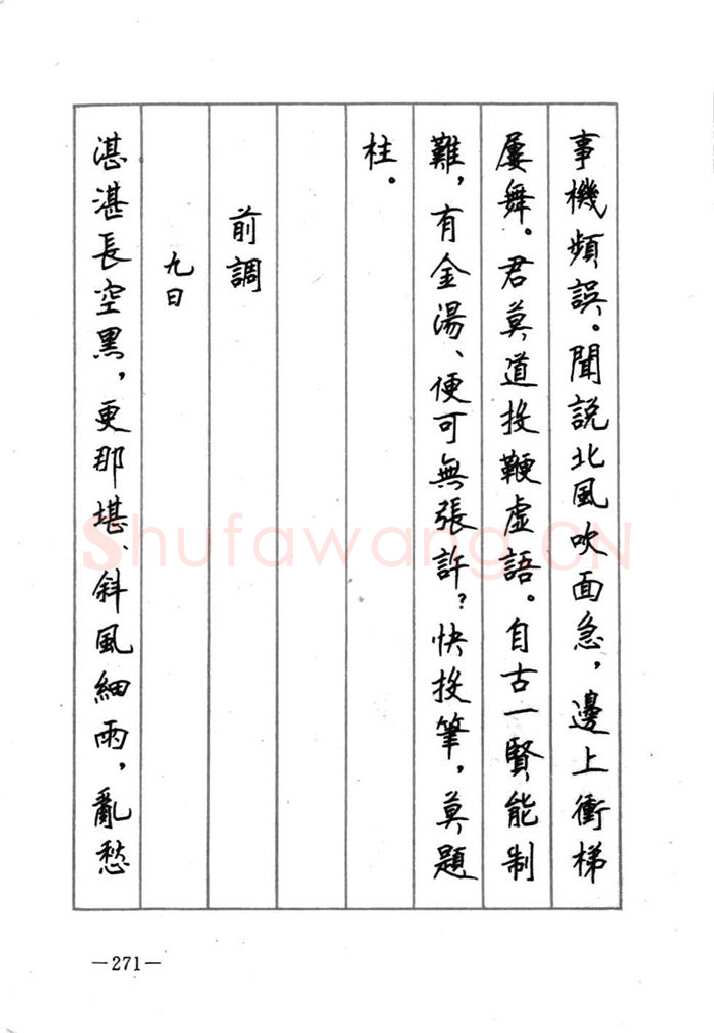 事機頻誤。聞説北風吹面急，邊上衝梯
屢舞。君莫道投鞭虚語。自古一賢能制
難，有金湯、便可無張許？快投筆，莫題
柱。
前調
九日
湛湛長空黑，更那堪、斜風細雨，亂愁
Shufawang.CN
—271—